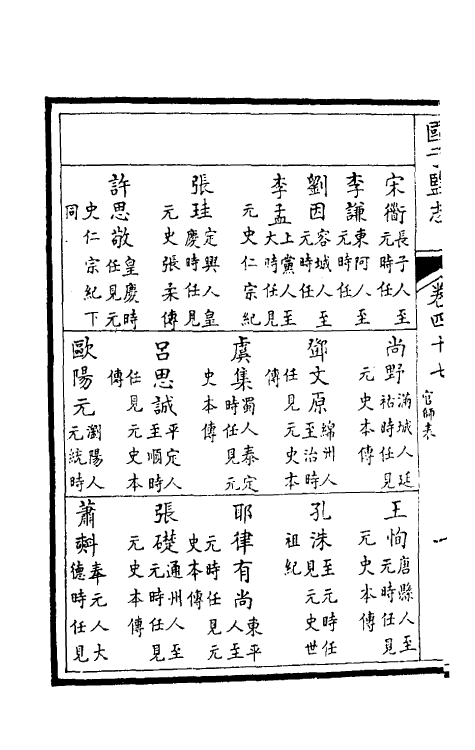 國子監志 卷四十七 官師表 一
宋衟長子人至
元時任
李謙東阿人至
元時任
劉因容城人至
元時任
李孟上黨人至
大時任見
元史仁宗紀
張珪定興人皇
慶時任見
元史張柔傳
許思敬皇慶時
任見元
史仁宗紀下
同
尚野滿城人延
祐時任見
元史本傳
鄧文原綿州人
至治時
任見元史本
傳
虞集蜀人泰定
時任見元
史本傳
呂思誠平定人
至順時
任見元史本
傳
歐陽元瀏陽人
元統時
王恂唐縣人至
元時任見
元史本傳
孔洙至元時任
見元史世
祖紀
耶律有尚東平
人至
元時任見元
史本傳
張礎通州人至
元時任見
元史本傳
蕭㪺奉元人大
德時任見